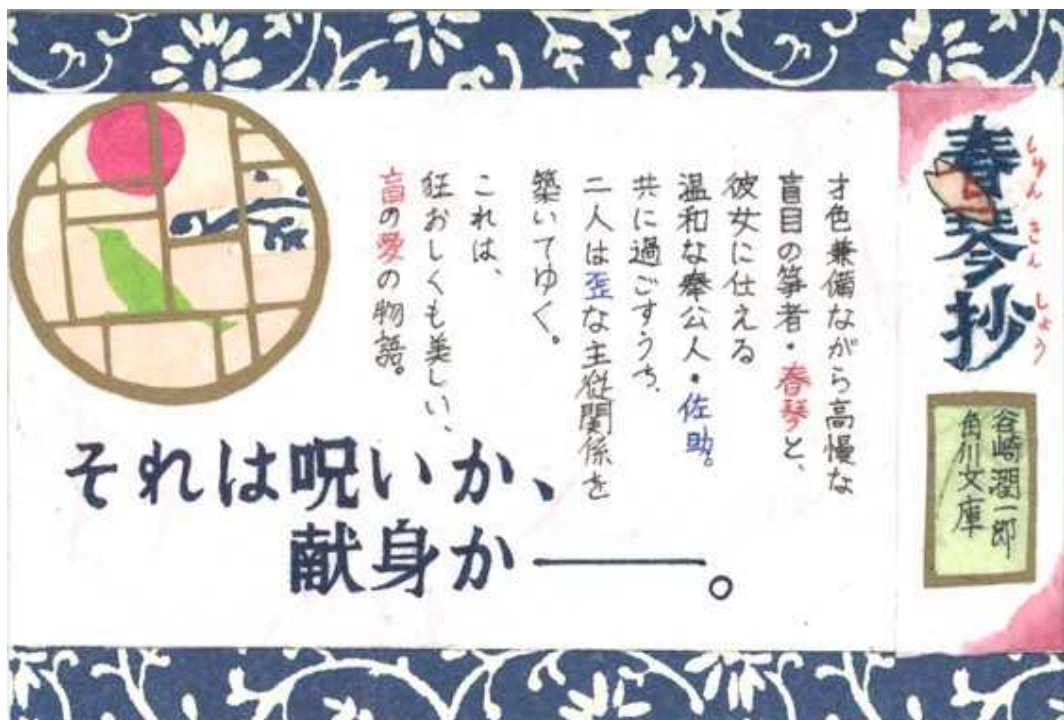 春琴抄
しゅんきんしょう
谷崎潤一郎
角川文庫
才色兼備ながら高慢な
盲目の箏者・春琴と、
彼女に仕える
温和な奉公人・佐助。
共に過ごすうち、
二人は歪な主従関係を
築いてゆく。
これは、
狂おしくも美しい、
盲の愛の物語。
それは呪いか、
献身か――。